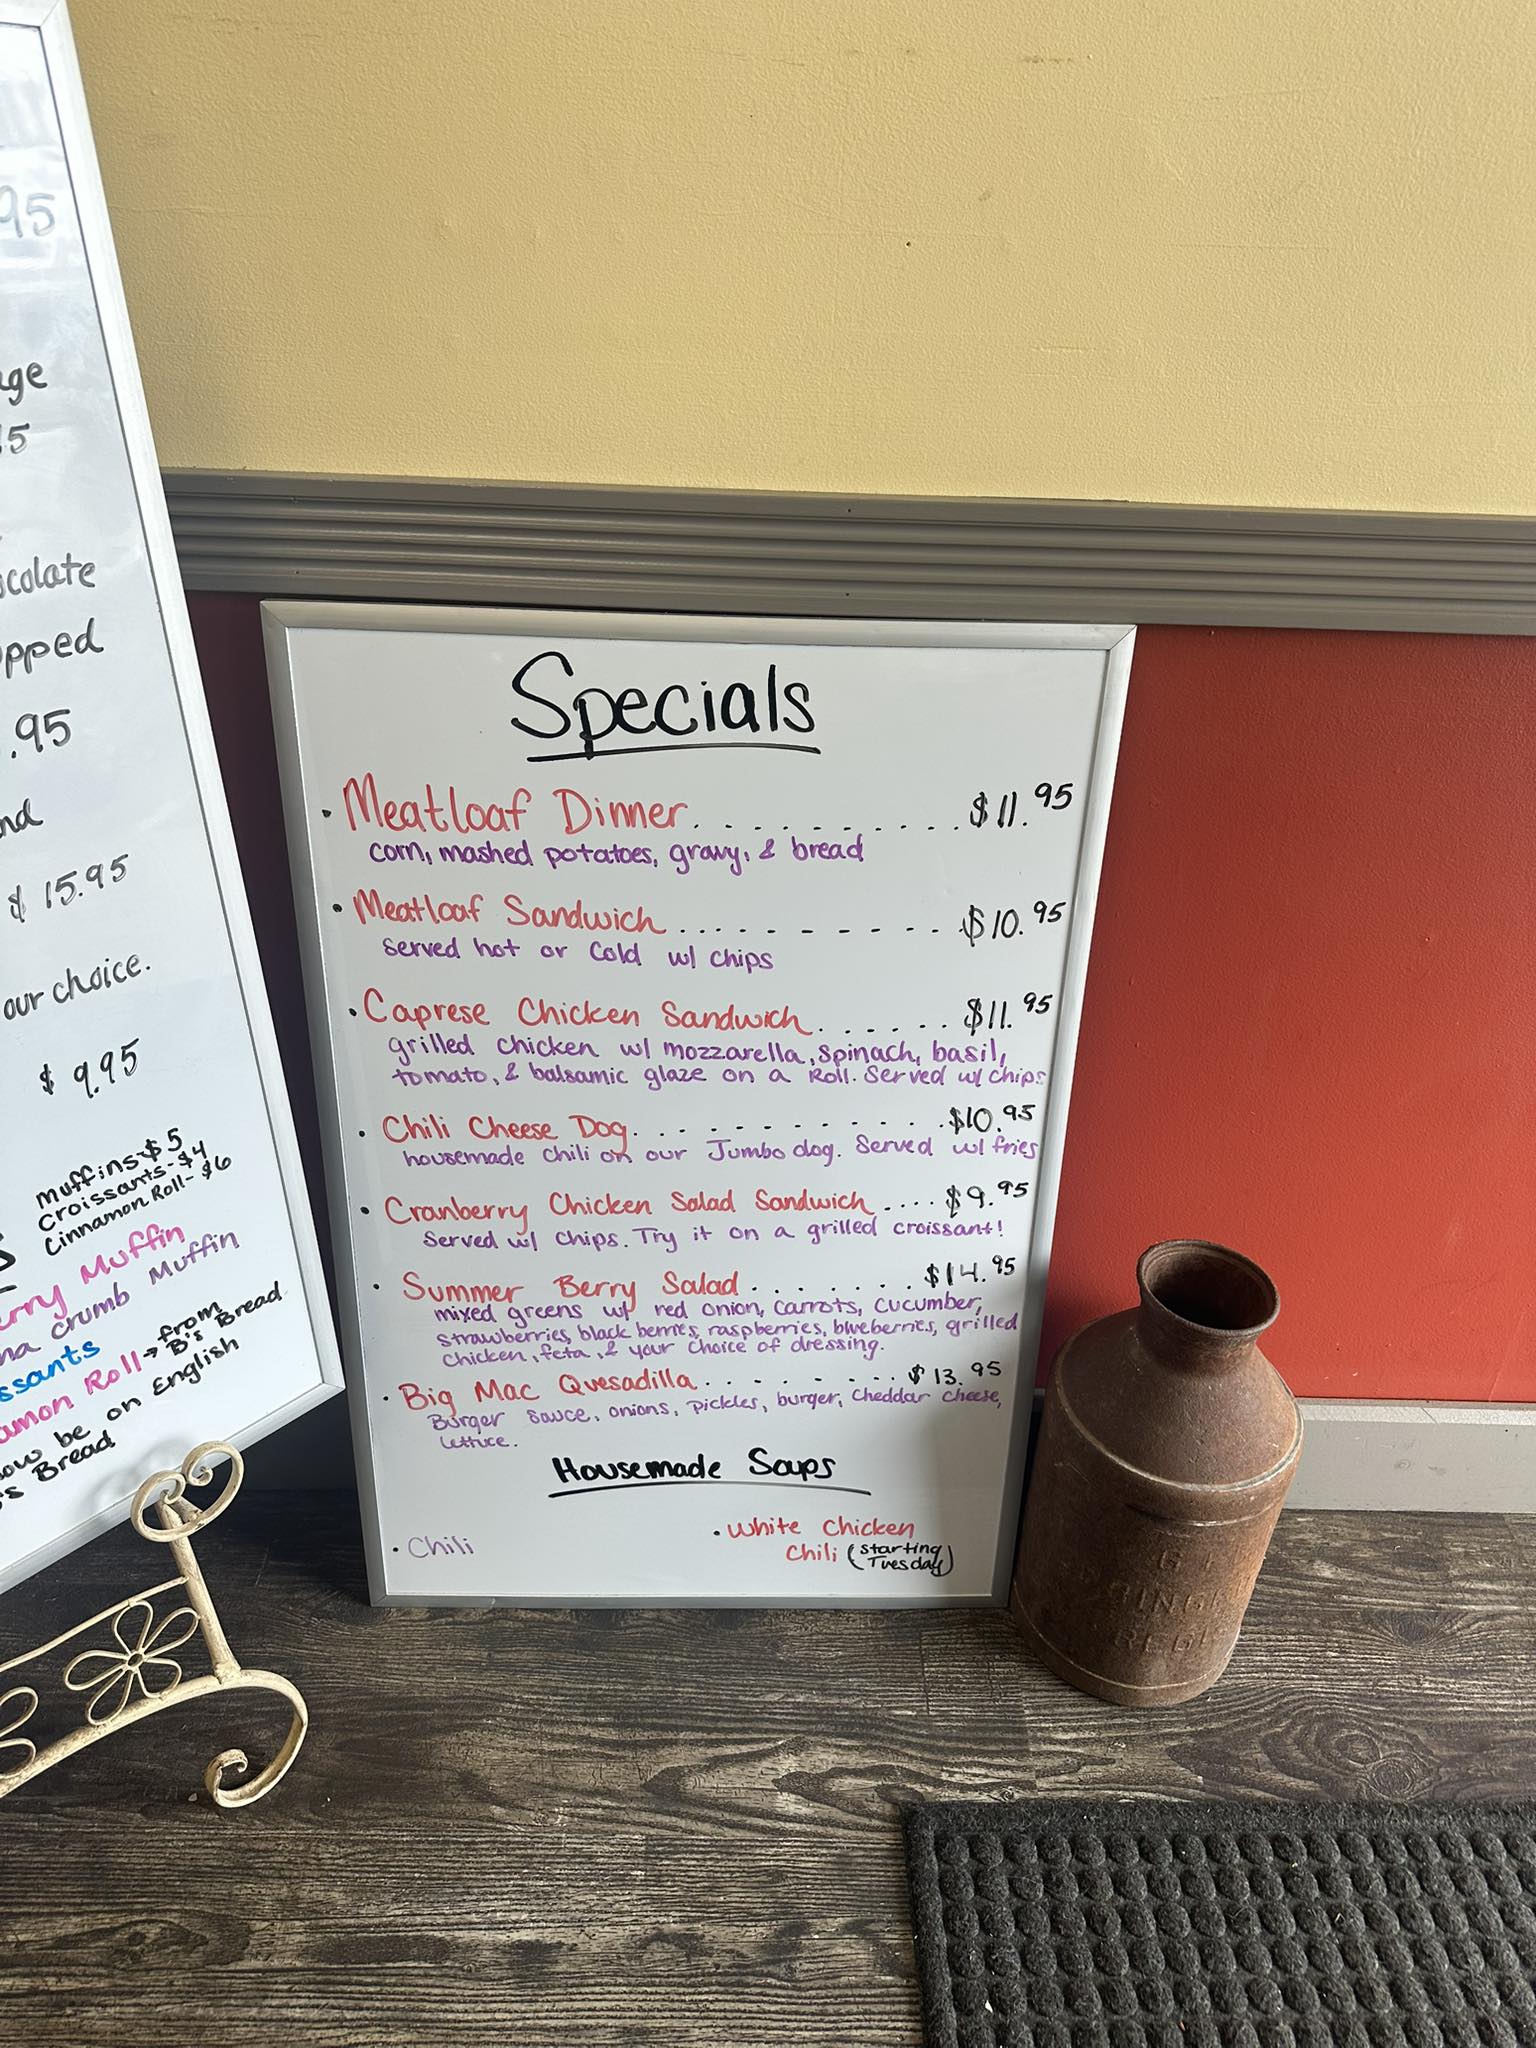 95
15
pped
.95
$ 15.95
our choice.
$ 9.95
muffins-$5
Croissants-$4
Cinnamon Roll-$6
Muffin
crumb Muffin
Roll→from
B's Bread
be on English
Bread
Specials
• Meatloaf Dinner.......... $11.95
corn, mashed potatoes, gravy, & bread
• Meatloaf Sandwich.......... $10.95
served hot or cold w/ chips
• Caprese Chicken Sandwich...... $11.95
grilled chicken w/ mozzarella, spinach, basil,
tomato, & balsamic glaze on a Roll. Served w/ chips
• Chili Cheese Dog............ $10.95
housemade chili on our Jumbo dog. Served w/ fries
• Cranberry Chicken Salad Sandwich .... $9.95
Served w/ chips. Try it on a grilled croissant!
• Summer Berry Salad....... $14.95
mixed greens w/ red onion, carrots, cucumber,
strawberries, black berries, raspberries, blueberries, grilled
chicken, feta, & your choice of dressing.
• Big Mac Quesadilla......... $13.95
Burger sauce, onions, pickles, burger, cheddar cheese,
lettuce.
Housemade Soups
• Chili
• White Chicken
Chili (starting
Tuesday)